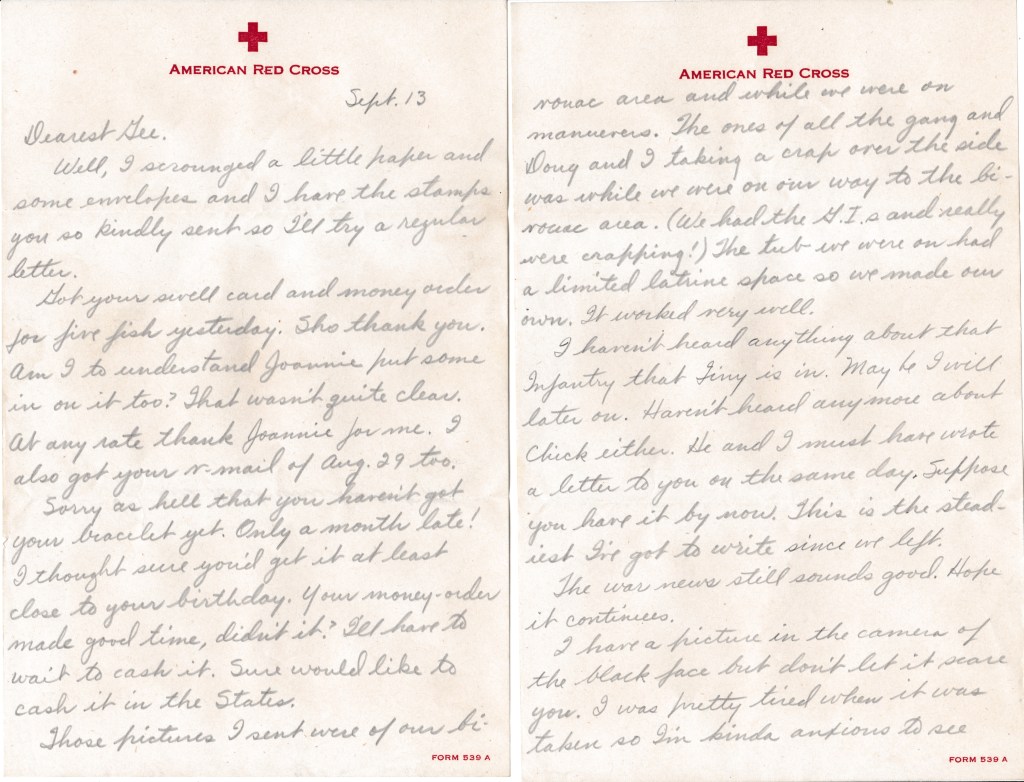 AMERICAN RED CROSS
Sept. 13
Dearest Gee.
Well, I scrounged a little paper and
some envelopes and I have the stamps
you so kindly sent so I'll try a regular
letter.
Got your swell card and money order
for five fish yesterday. Sho thank you.
Am I to understand Joannie put some
in on it too? That wasn't quite clear.
At any rate thank Joannie for me. I
also got your v-mail of Aug. 29 too.
Sorry as hell that you haven't got
your bracelet yet. Only a month late!
I thought sure you'd get it at least
close to your birthday. Your money-order
made good time, didn't it? I'll have to
wait to cash it. Sure would like to
cash it in the States.
Those pictures I sent were of our bi-
FORM 539 A
AMERICAN RED CROSS
vouac area and while we were on
manuevers. The ones of all the gang and
Doug and I taking a crap over the side
was while we were on our way to the bi-
vouac area. (We had the G.I.s and really
were crapping!) The tub we were on had
a limited latrine space so we made our
own. It worked very well.
I haven't heard anything about that
Infantry that Tiny is in. Maybe I will
later on. Haven't heard anymore about
Chick either. He and I must have wrote
a letter to you on the same day. Suppose
you have it by now. This is the stead-
iest I've got to write since we left.
The war news still sounds good. Hope
it continues.
I have a picture in the camera of
the black face but don't let it scare
you. I was pretty tired when it was
taken so I'm kinda anxious to see
FORM 539 A